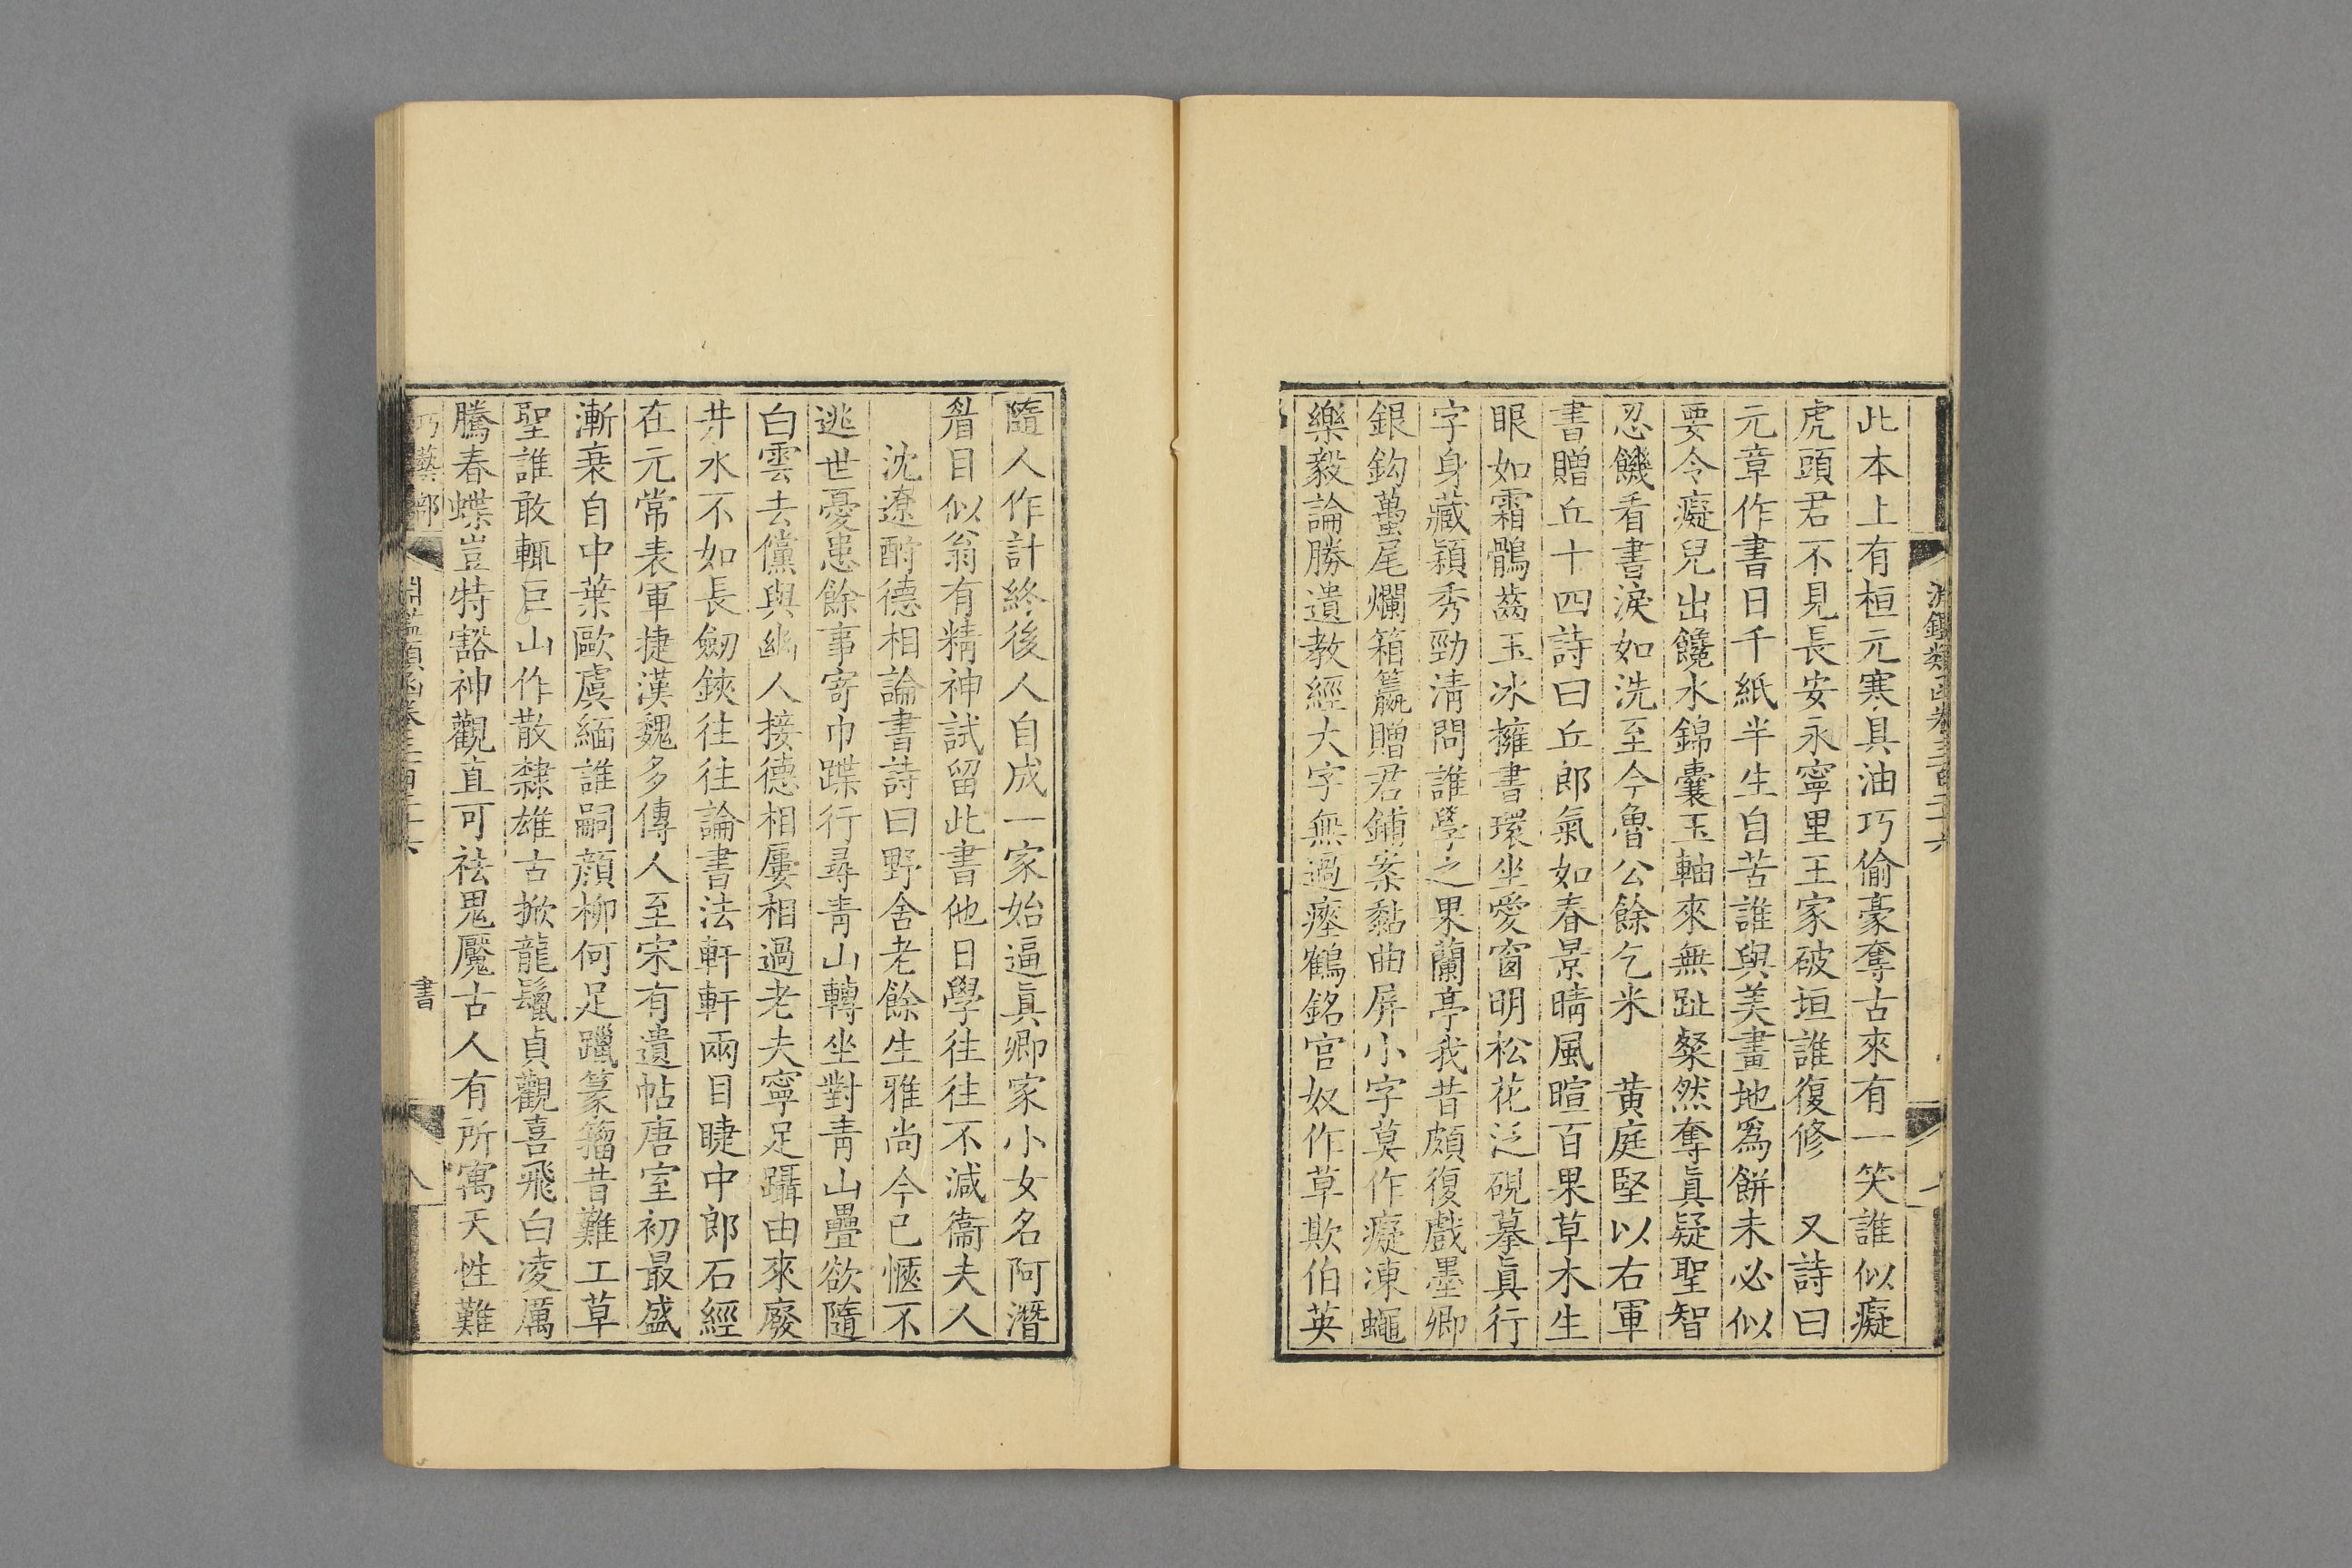 此本上有桓元寒具油巧偷豪奪古來有一笑誰似癡
虎頭君不見長安永寧里王家破垣誰復修　又詩曰
元章作書日千紙半生自苦誰與美畫地爲餅未必似
要令癡兒出饞水錦囊玉軸來無趾粲然奪眞疑聖智
忍饑看書淚如洗至今魯公餘乞米　黄庭堅以右軍
書贈丘十四詩曰丘郎氣如春景晴風暄百果草木生
眼如霜鶻齒玉冰擁書環坐愛窗明松花泛硯摹眞行
字身藏穎秀勁清問誰學之果蘭亭我昔頗復戲墨卿
銀鈎蠆尾爛箱籯贈君鋪案黏曲屏小字莫作癡凍蠅
樂毅論勝遺教經大字無過瘞鶴銘官奴作草欺伯英
隨人作計終後人自成一家始逼眞卿家小女名阿潛
眉目似翁有精神試留此書他日學往往不減衞夫人
沈遼酧德相論書詩曰野舍老餘生雅尚今已愜不
逃世憂患餘事寄巾蹀行尋靑山轉坐對靑山疊欲隨
白雲去儻與幽人接德相屢相過老夫寧足躡由來廢
井水不如長劒鋏往往論書法軒軒兩目睫中郎石經
在元常表軍捷漢魏多傳人至宋有遺帖唐室初最盛
漸衰自中葉歐虞緬誰嗣顔柳何足躐篆籀昔難工草
聖誰敢輒巨山作散隸雄古掀龍鬛貞觀喜飛白凌厲
騰春蝶豈特豁神觀直可祛鬼魘古人有所寓天性難
巧藝部　淵鑑類函卷三百二十六　書　八